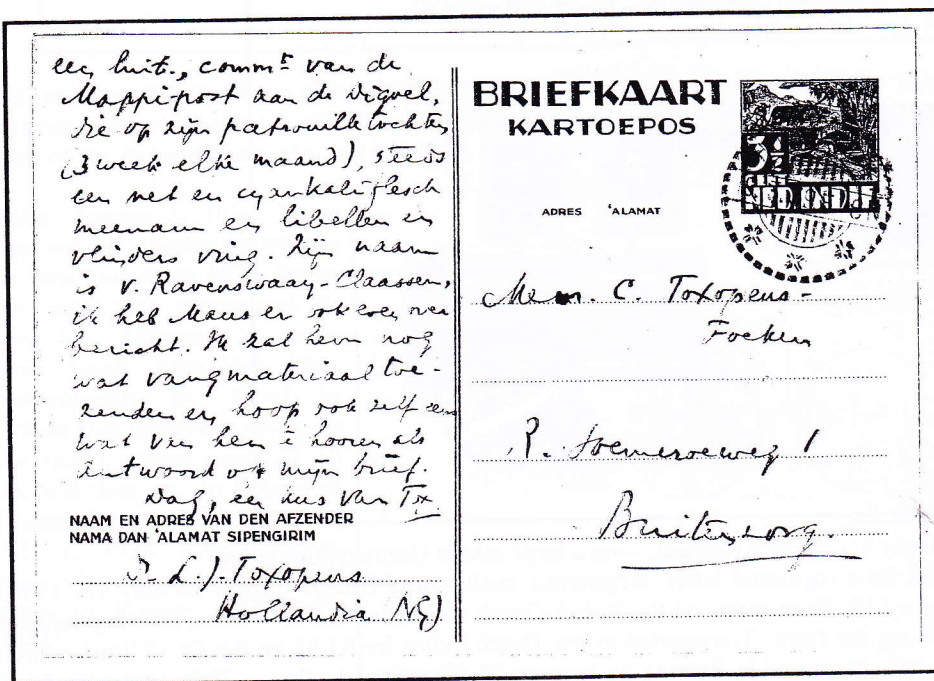 een luit., commt van de
Mappi-post aan de Digoel,
die op zijn patrouilletochten
(3 week elke maand), steeds
een net en cyankaliflesch
meenam en libellen en
vlinders ving. Zijn naam
is v. Ravenswaay-Claassen,
ik heb Maus er ook over
bericht. Ik zal hem nog
wat vangmateriaal toe-
zenden en hoop ook zelf eens
wat van hem te hooren als
antwoord op mijn brief.
Dag, een kus van Tox
NAAM EN ADRES VAN DEN AFZENDER
NAMA DAN 'ALAMAT SIPENGIRIM
L.J. Toxopeus
Hollandia NG
BRIEFKAART
KARTOEPOS
3½
CENT
NED. INDIË
ADRES 'ALAMAT
Mevr. C. Toxopeus-
Focken
Soemeroeweg 1
Buitenzorg.